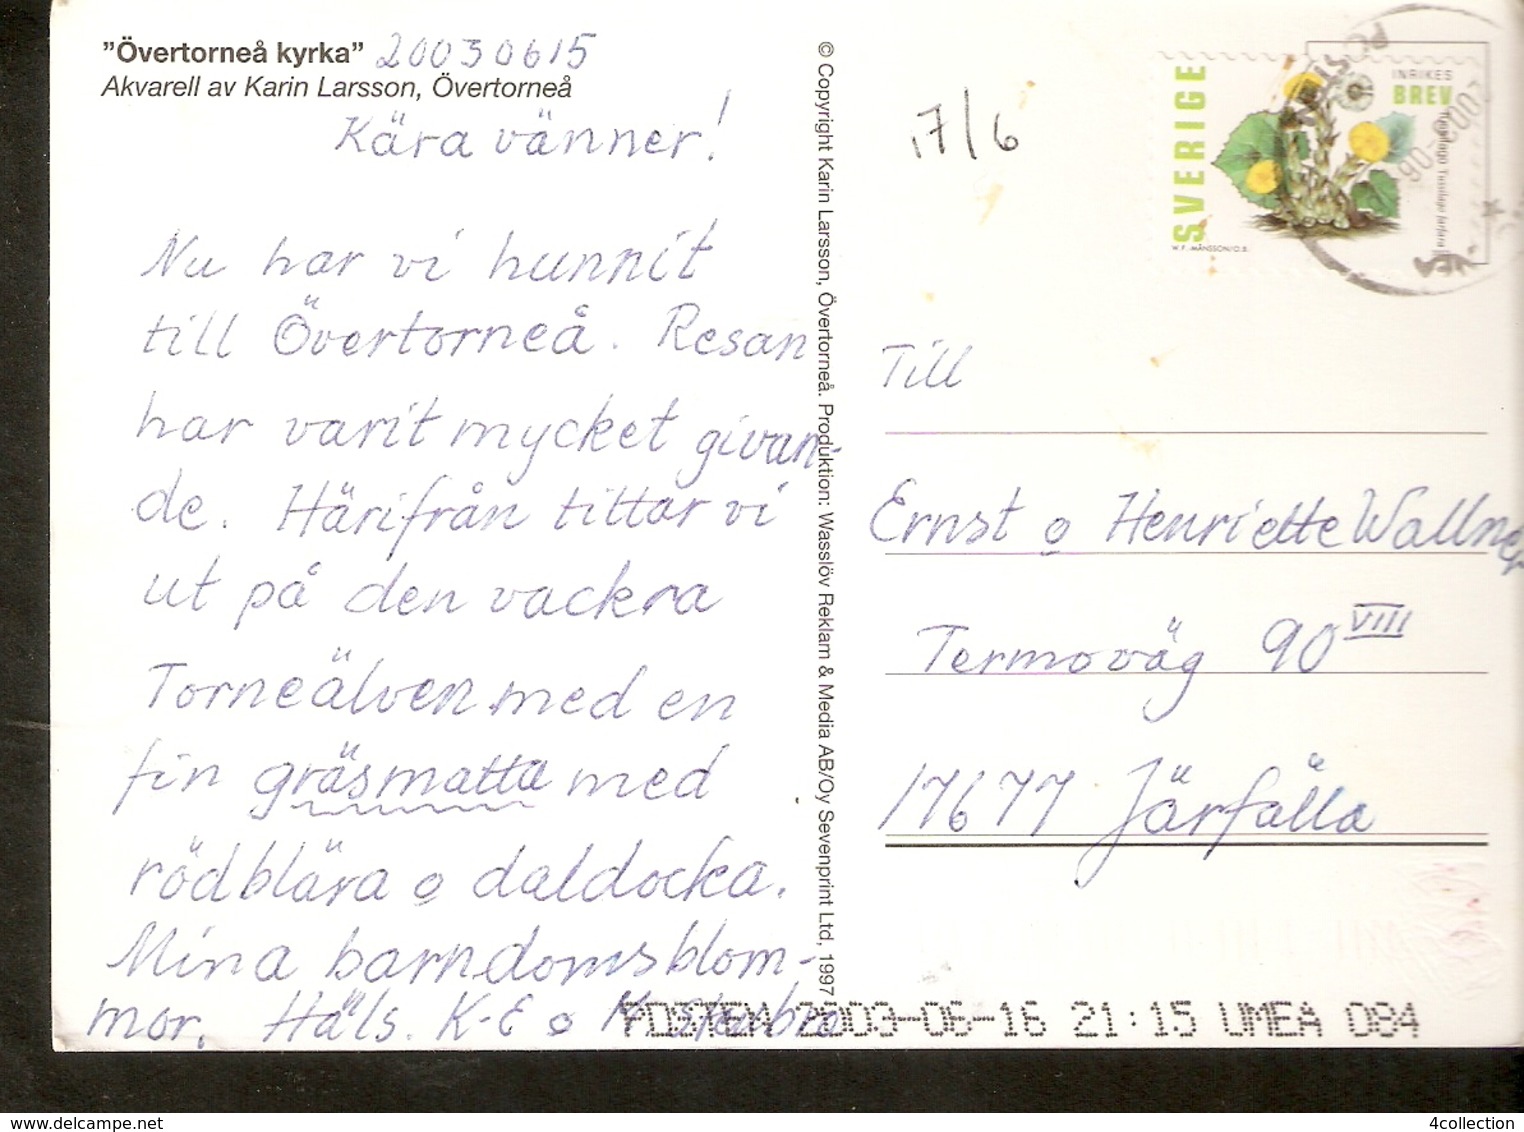 "Övertorneå kyrka" 20030615
Akvarell av Karin Larsson, Övertorneå
Kära vänner!
Nu har vi hunnit
till Övertorneå. Resan
har varit mycket givan-
de. Härifrån tittar vi
ut på den vackra
Torneälven med en
fin gräsmatta med
rödblära o daldocka.
Mina barndomsblom-
mor. Häls. K-E o M
© Copyright Karin Larsson, Övertorneå. Produktion: Wasslöv Reklam & Media AB/Oy Sevenprint Ltd, 1997
17/6
SVERIGE
INRIKES
BREV
Tussilago Tussilago farfara
W.F. MÅNSSON/O.B.
POSTEN
Till
Ernst o Henriette Wallner
Termoväg 90 VIII
17677 Järfälla
POSTEN 2003-06-16 21:15 UMEA 084
4collection